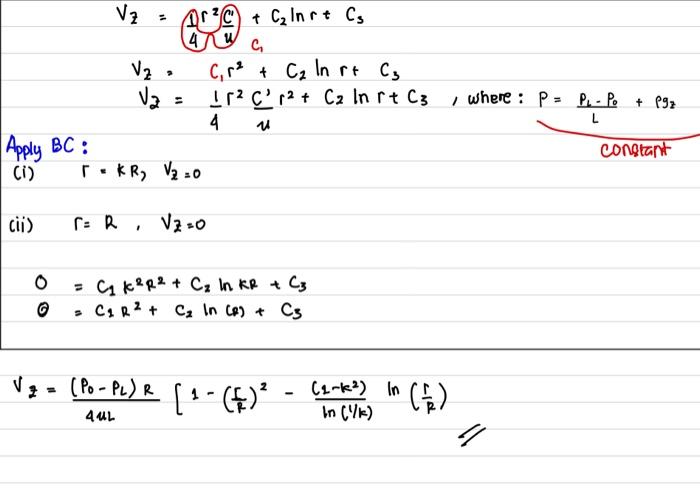 Vz = 1/4 r² C'/u + C₂ ln r + C₃
C₁
Vz = C₁r² + C₂ ln r + C₃
Vz = 1/4 r² C'/u r² + C₂ ln r + C₃ , where : P = (PL - P₀)/L + ρgz
constant
Apply BC :
(i) r = kR, Vz = 0
(ii) r = R , Vz = 0
0 = C₁ k²R² + C₂ ln kR + C₃
0 = C₁ R² + C₂ ln (R) + C₃
Vz = (P₀ - PL) R / 4uL [ 1 - (r/R)² - (1-k²)/ln(1/k) ln (r/R)